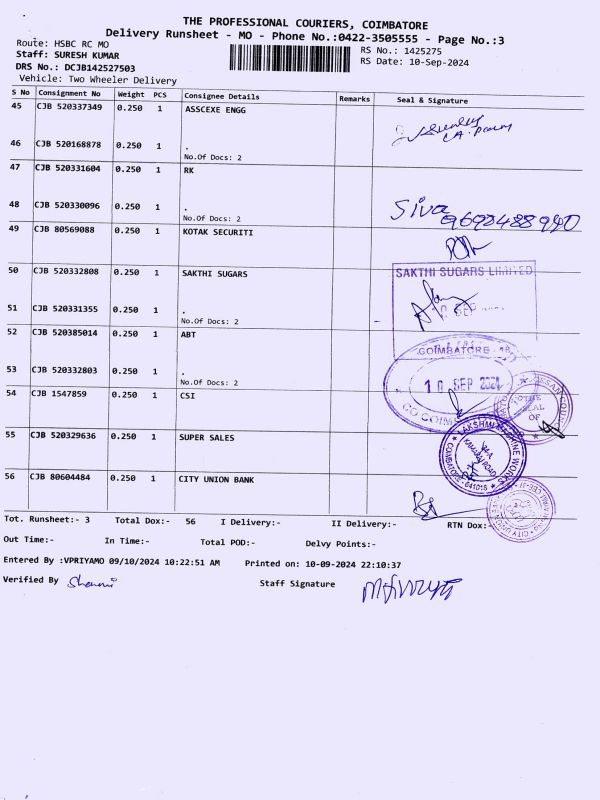 THE PROFESSIONAL COURIERS, COIMBATORE
Delivery Runsheet - MO - Phone No.:0422-3505555 - Page No.:3
Route: HSBC RC MO
RS No.: 1425275
Staff: SURESH KUMAR
RS Date: 10-Sep-2024
DRS No.: DCJB142527503
Vehicle: Two Wheeler Delivery
S No Consignment No Weight PCS Consignee Details Remarks Seal & Signature
45 CJB 520337349 0.250 1 ASSCEXE ENGG
46 CJB 520168878 0.250 1 .
No.Of Docs: 2
47 CJB 520331604 0.250 1 RK
48 CJB 520330096 0.250 1 .
No.Of Docs: 2
Siva
49 CJB 80569088 0.250 1 KOTAK SECURITI
50 CJB 520332808 0.250 1 SAKTHI SUGARS
SAKTHI SUGARS LIMITED
51 CJB 520331355 0.250 1 .
No.Of Docs: 2
52 CJB 520385014 0.250 1 ABT
COIMBATORE
53 CJB 520332803 0.250 1 .
No.Of Docs: 2
10 SEP 2024
54 CJB 1547859 0.250 1 CSI
THE
SEAL
OF
55 CJB 520329636 0.250 1 SUPER SALES
LAKSHMI MACHINE WORKS
COIMBATORE - 641016
56 CJB 80604484 0.250 1 CITY UNION BANK
Tot. Runsheet:- 3 Total Dox:- 56 I Delivery:- II Delivery:- RTN Dox:-
Out Time:- In Time:- Total POD:- Delvy Points:-
Entered By :VPRIYAMO 09/10/2024 10:22:51 AM Printed on: 10-09-2024 22:10:37
Verified By Staff Signature